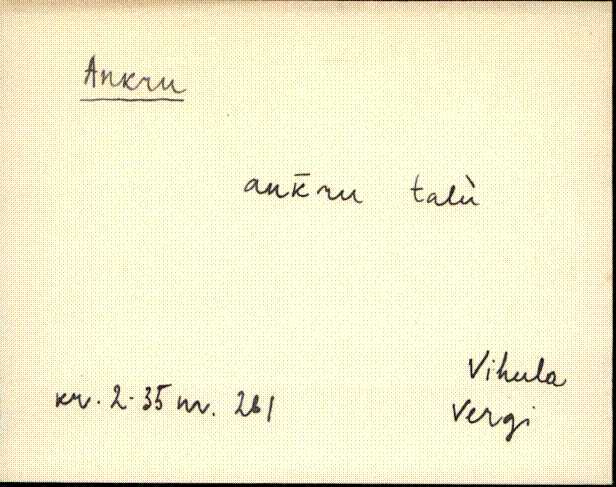 Ankru
ank̄ru talù
Vihula
kr. 2-35 nr. 261
Vergi